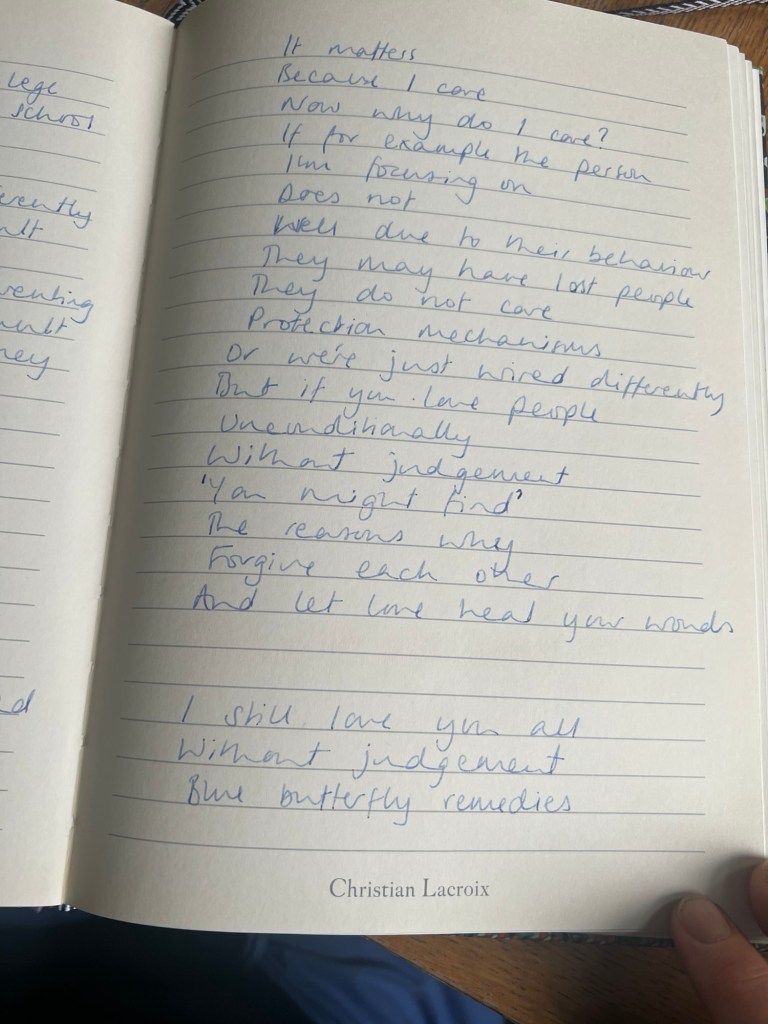 lege
school
erently
ult
venting
ault
hey
d
It matters
Because I care
Now why do I care?
If for example the person
I'm focusing on
Does not
Well due to their behaviour
They may have lost people
They do not care
Protection mechanisms
Or we're just wired differently
But if you love people
Unconditionally
Without judgement
'You might find'
The reasons why
Forgive each other
And let love heal your wonds
I still love you all
Without judgement
Blue butterfly remedies
Christian Lacroix